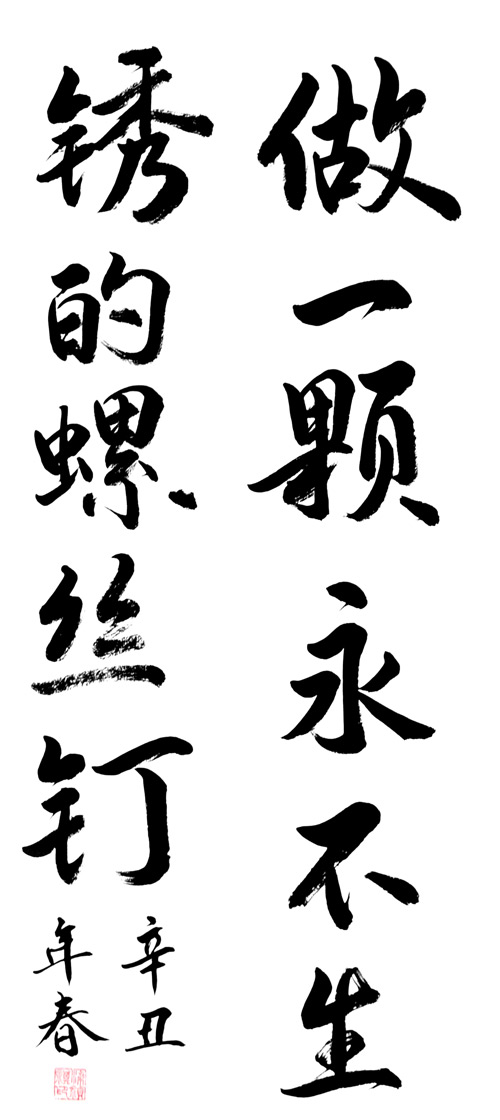 做一颗永不生
锈的螺丝钉
辛丑
年春